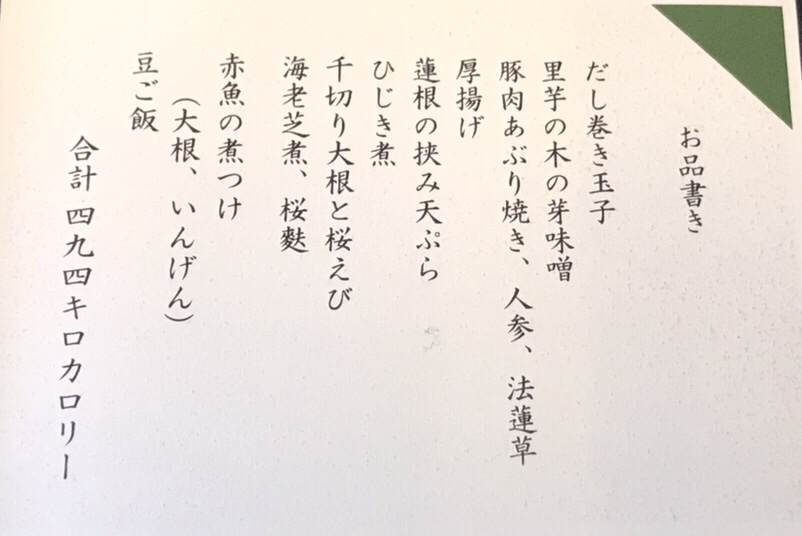 お品書き
だし巻き玉子
里芋の木の芽味噌
豚肉あぶり焼き、人参、法蓮草
厚揚げ
蓮根の挟み天ぷら
ひじき煮
千切り大根と桜えび
海老芝煮、桜麩
赤魚の煮つけ
（大根、いんげん）
豆ご飯
合計 四九四キロカロリー